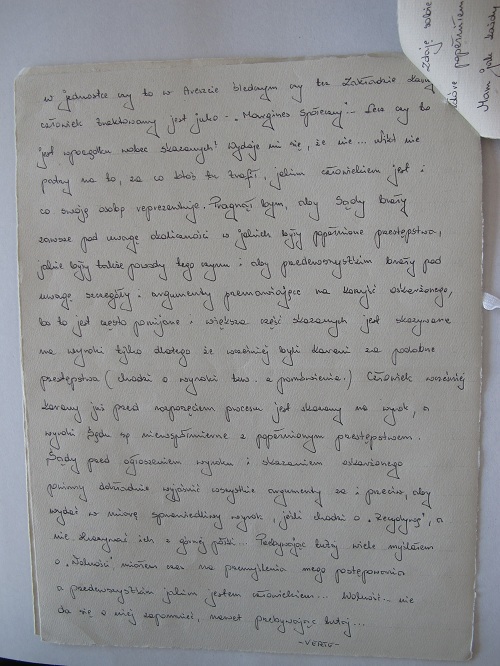 w jednostce czy to w Areszcie śledczym czy też Zakładzie Karny
człowiek traktowany jest jako - „Margines społeczny"... Lecz czy to
jest wporządku wobec skazanych? Wydaje mi się, że nie... Nikt nie
patrzy na to, za co ktoś tu trafił, jakim człowiekiem jest i
co swoją osobą reprezentuje. Pragnął bym, aby Sądy brały
zawsze pod uwagę okoliczności w jakich były popełnione przestępstwa,
jakie były także powody tego czynu i aby przedewszystkim brały pod
uwagę szczegóły i argumenty przemawiające na korzyść oskarżonego,
bo to jest często pomijane i większa część skazanych jest skazywana
na wyroki tylko dlatego że wcześniej byli karani za podobne
przestępstwa (chodzi o wyroki tzw. z pomówienia.) Człowiek wcześniej
karany już przed rozpoczęciem procesu jest skazany na wyrok, a
wyroki Sądu są niewspółmierne z popełnionym przestępstwem.
Sądy przed ogłoszeniem wyroku i skazaniem oskarżonego
powinny dokładnie wyjaśnić wszystkie argumenty za i przeciw, aby
wydać w miarę sprawiedliwy wyrok, jeśli chodzi o „Recydywę", a
nie skazywać ich z górnej półki... Przebywając tutaj wiele myślałem
o „Wolności" miałem czas na przemyślenia mego postępowania
a przedewszystkim jakim jestem człowiekiem... Wolność - nie
da się o niej zapomnieć, nawet przebywając tutaj...
-VERTE-
Zdaję sobie
które popełniłem
Mam jak każdy